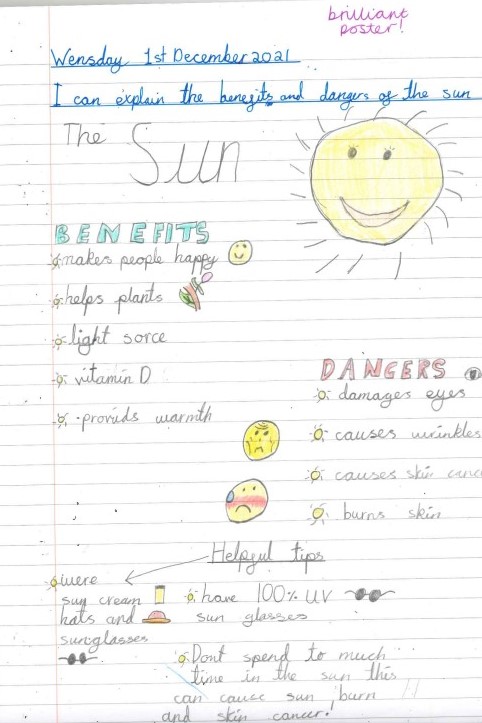 brilliant
poster!
Wensday 1st December 2021
I can explain the benefits and dangers of the sun
The Sun
BENEFITS
makes people happy
helps plants
light sorce
vitamin D
provids warmth
DANGERS
damages eyes
causes wrinkles
causes skin canc
burns skin
Helpful tips
were
sun cream
hats and
sunglasses
have 100% UV
sun glasses
Dont spend to much
time in the sun this
can cause sun burn
and skin cancer!